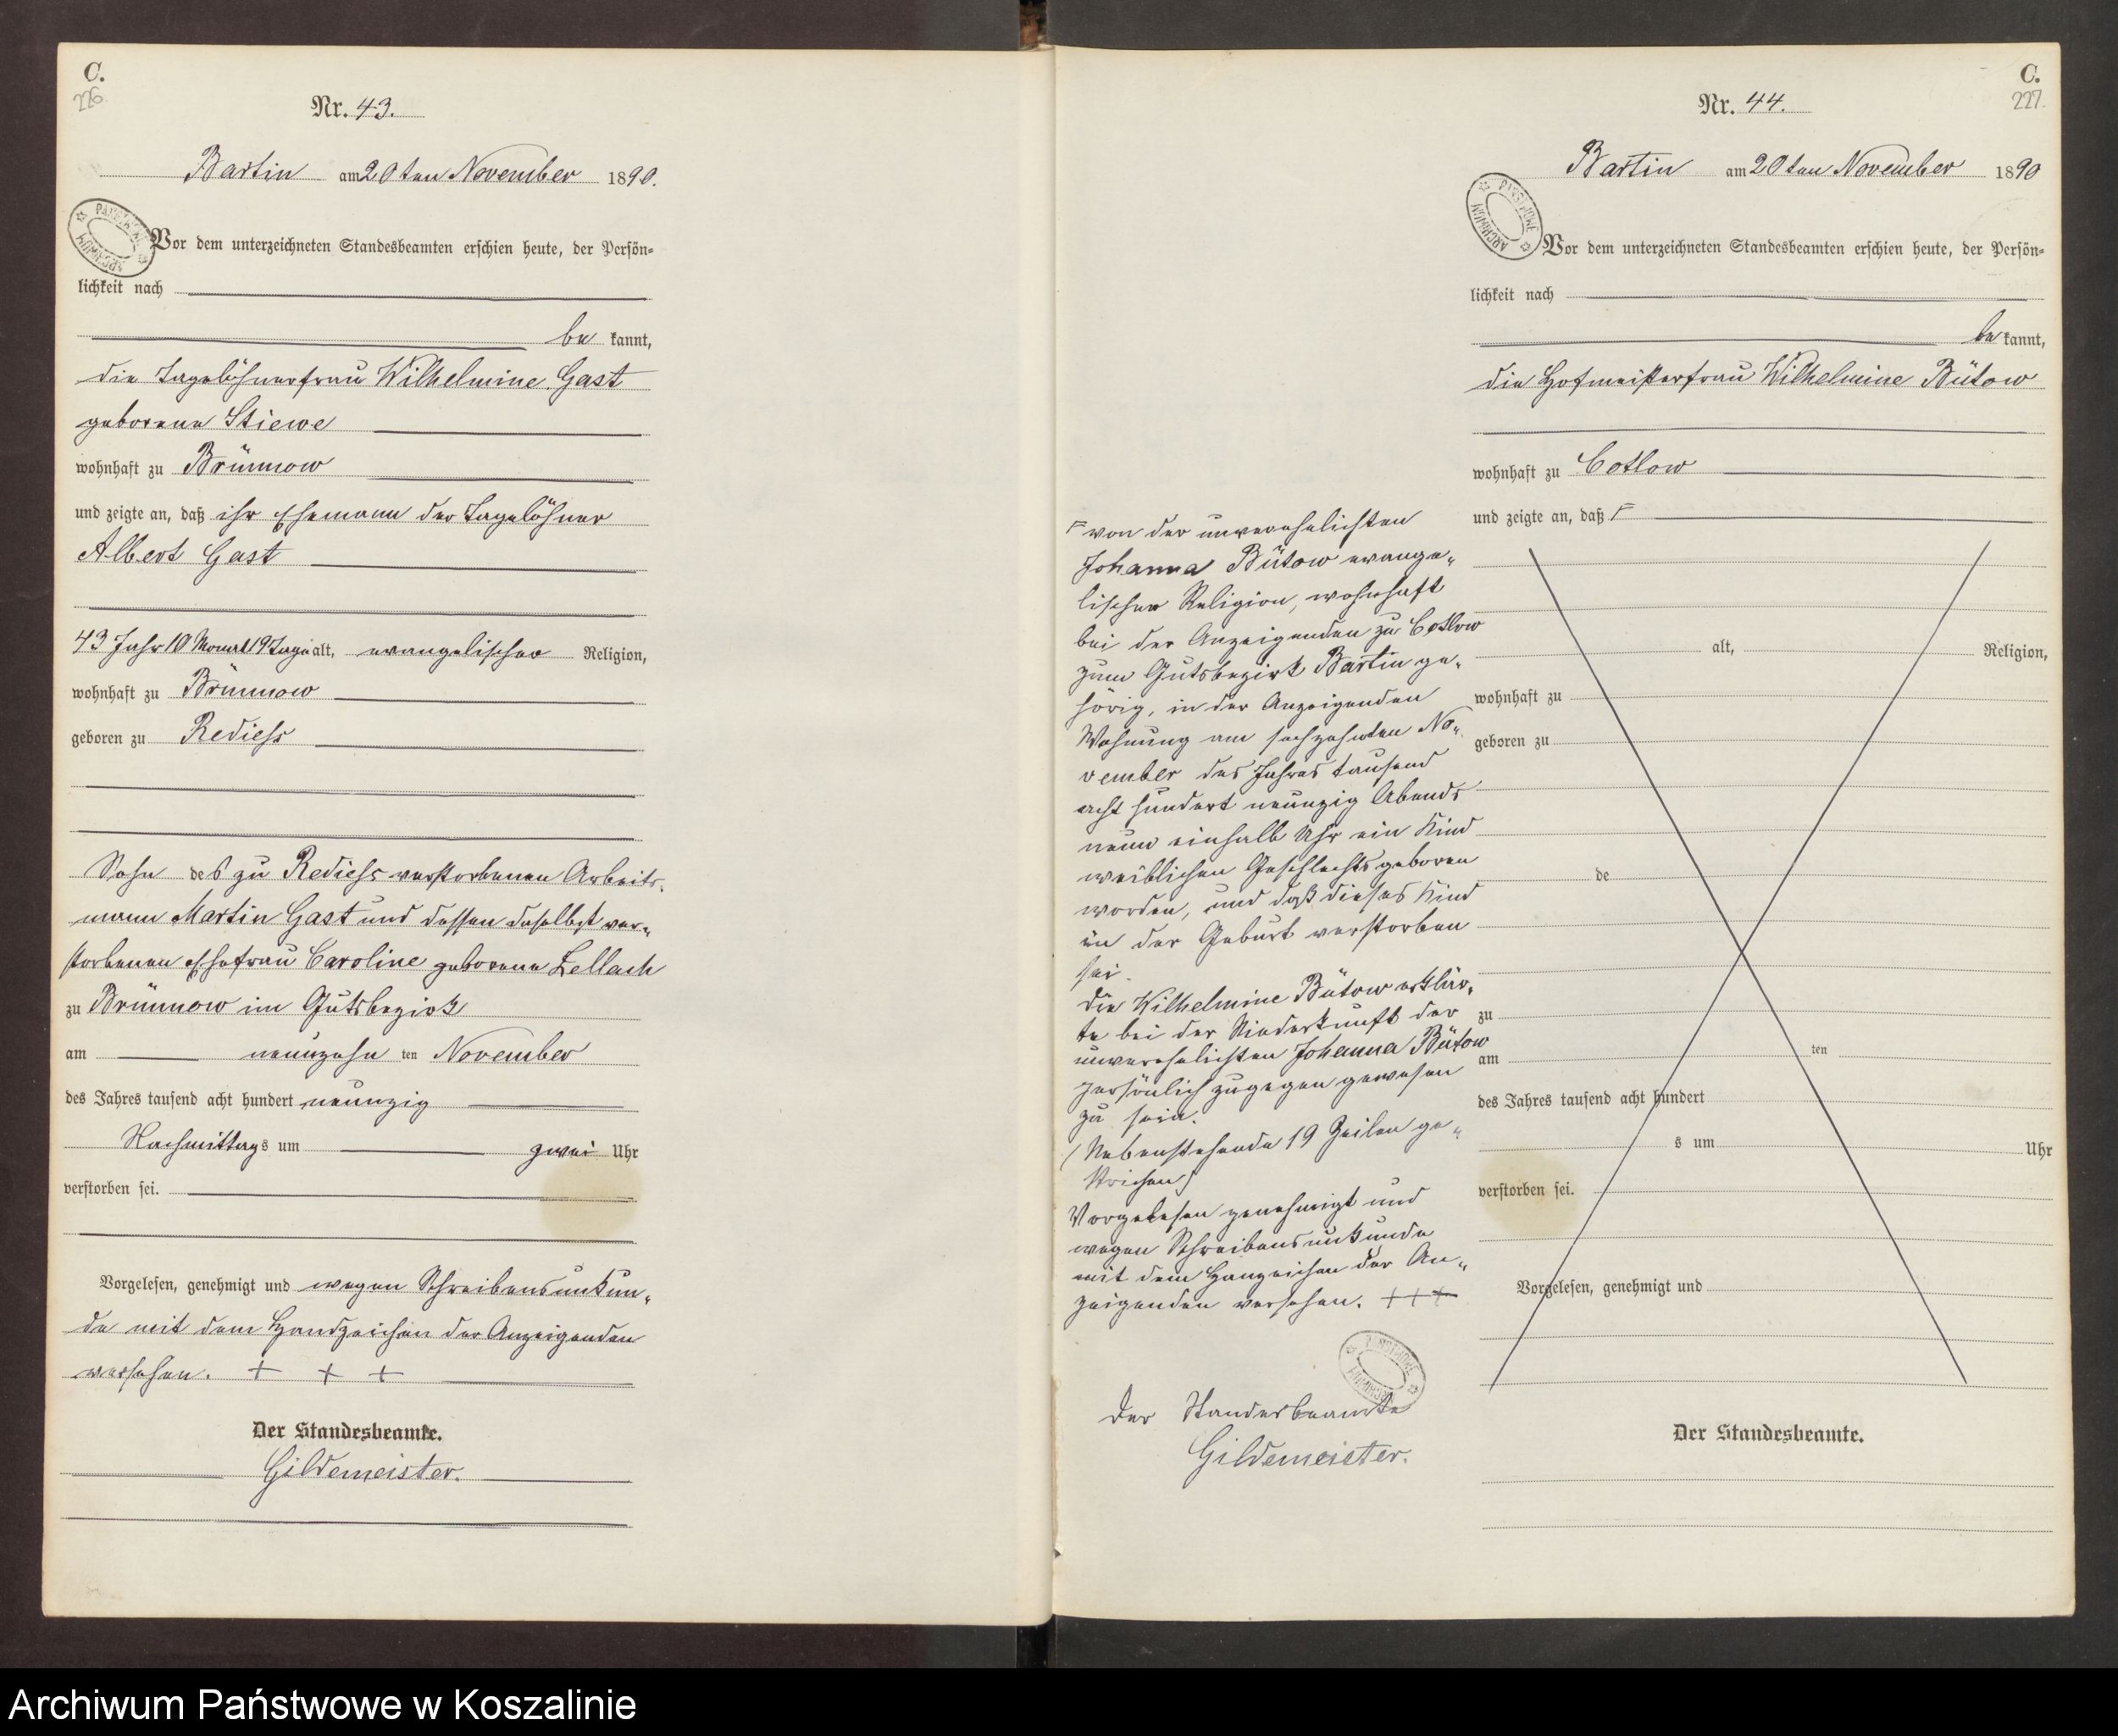 C.
226.
Nr. 43.
Bartin am 20ten November 1890.
Vor dem unterzeichneten Standesbeamten erschien heute, der Persön-
lichkeit nach
be kannt,
die Tagelöhnerfrau Wilhelmine Gast
geborene Stiewe
wohnhaft zu Brünnow
und zeigte an, daß ihr Ehemann der Tagelöhner
Albert Gast
43 Jahr 10 Monat 19 Tage alt, evangelischer Religion,
wohnhaft zu Brünnow
geboren zu Rediess
Sohn des zu Rediess verstorbenen Arbeits-
mann Martin Gast und dessen daselbst ver-
storbenen Ehefrau Caroline geborene Zellach
zu Brünnow im Gutsbezirk
am neunzehn ten November
des Jahres tausend acht hundert neunzig
Nachmittags um zwei Uhr
verstorben sei.
Vorgelesen, genehmigt und wegen Schreibensunkun-
de mit dem Handzeichen der Anzeigenden
versehen. + + +
Der Standesbeamte.
Gildemeister.
PAŃSTWOWE ARCHIWUM
C.
227.
Nr. 44.
Bartin am 20ten November 1890
Vor dem unterzeichneten Standesbeamten erschien heute, der Persön-
lichkeit nach
be kannt,
die Hofmeisterfrau Wilhelmine Bütow
wohnhaft zu Cotlow
und zeigte an, daß
von der unverehelichten
Johanna Bütow evange-
lischer Religion, wohnhaft
bei der Anzeigenden zu Cotlow
zum Gutsbezirk Bartin ge-
hörig, in der Anzeigenden
Wohnung am sechzehnten No-
vember des Jahres tausend
acht hundert neunzig Abends
neun einhalb Uhr ein Kind
weiblichen Geschlechts geboren
worden, und daß dieses Kind
in der Geburt verstorben
sei.
die Wilhelmine Bütow erklär-
te bei der Niederkunft der
unverehelichten Johanna Bütow
persönlich zugegen gewesen
zu sein.
(Nebenstehende 19 Zeilen ge-
strichen)
Vorgelesen genehmigt und
wegen Schreibensunkunde
mit dem Hanzeichen der An-
zeigenden versehen. +++
Der Standesbeamte
Gildemeister.
alt, Religion,
wohnhaft zu
geboren zu
de
zu
am ten
des Jahres tausend acht hundert
s um Uhr
verstorben sei.
Vorgelesen, genehmigt und
Der Standesbeamte.
PAŃSTWOWE ARCHIWUM
PAŃSTWOWE ARCHIWUM
Archiwum Państwowe w Koszalinie